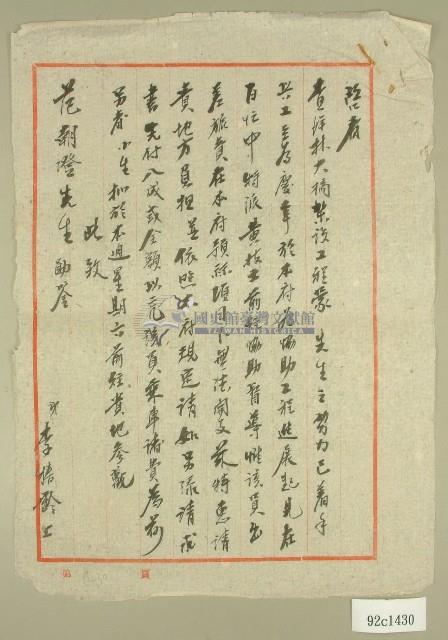 啓者
查坪林大橋架設工程蒙 先生之努力已着手
興工至為慶幸於本府為協助工程進展起見在
百忙中特派黃技士前往協助督導惟該員出
差旅費在本府預算項目下無法開支茲特惠請
貴地方負担並依照本府規定請如另陳請求
書先付八成或全額以
員乘車諸費為荷
另者小生擬於本週星期六前往貴地參觀
此致
范朝燈先生勛鑒
弟李
上
國史館臺灣文獻館
TAIWAN HISTORICA
92c1430